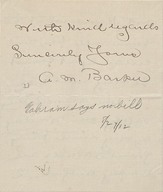 With kind regards
Sincerely Yours
A. M. Barker
Abram says no bill
1/27/12